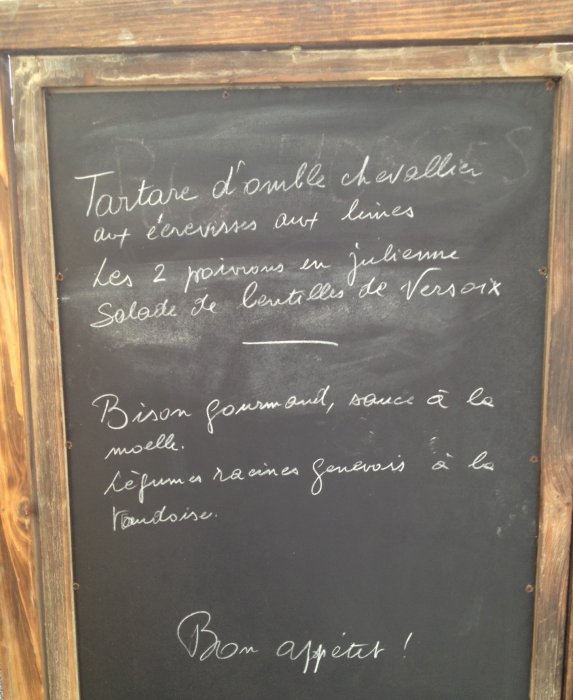 Tartare d'omble chevallier
aux écrevisses aux limes
Les 2 poivrons en julienne
Salade de lentilles de Versoix
Bison gourmand, sauce à la
moelle.
Légumes racines genevois à la
Vaudoise.
Bon appétit !